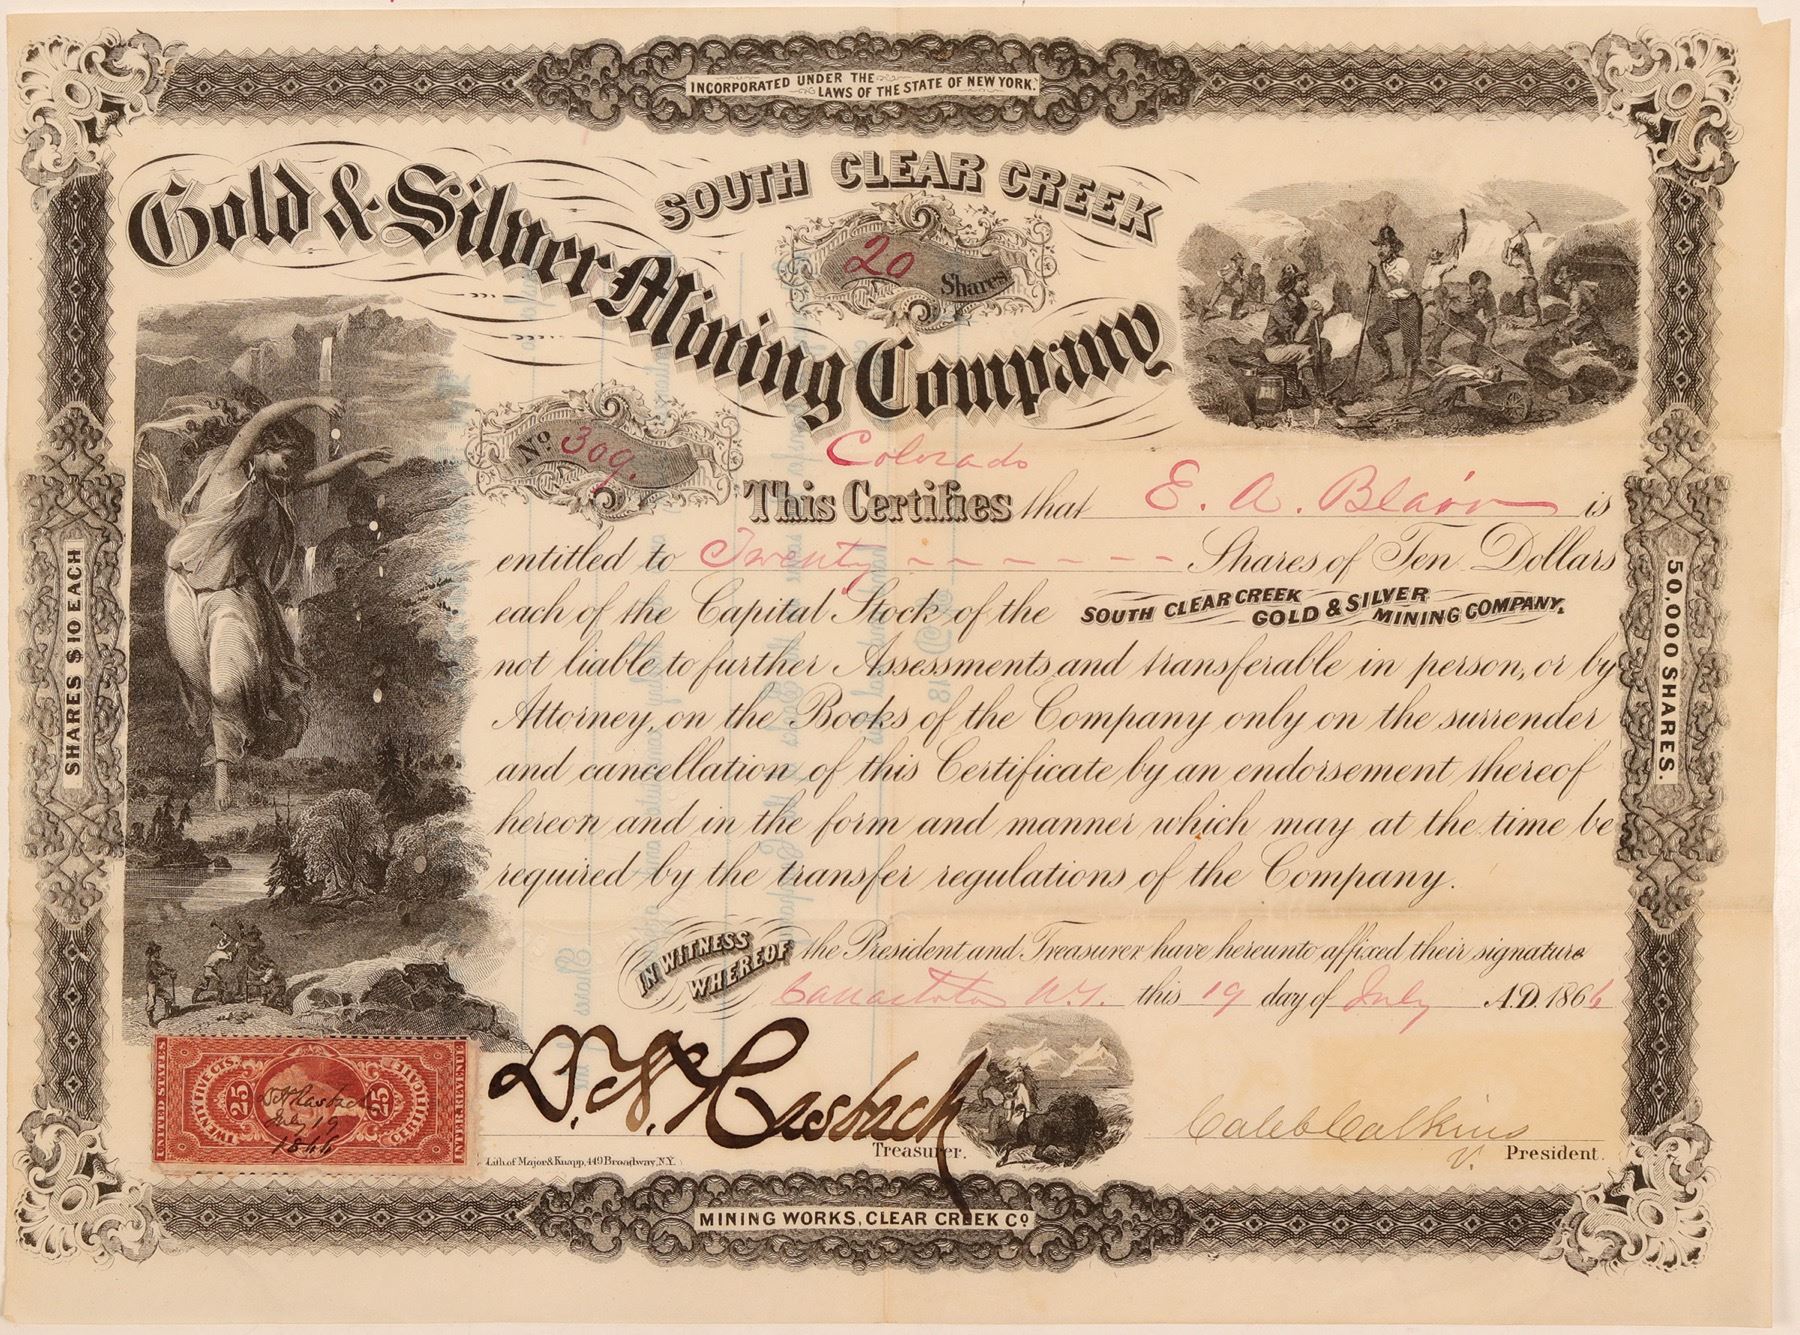 INCORPORATED UNDER THE
LAWS OF THE STATE OF NEW YORK.
SOUTH CLEAR CREEK
Gold & Silver Mining Company
20 Shares
No. 309.
Colorado
This Certifies that E. A. Blair is
entitled to Twenty - - - - - - - Shares of Ten Dollars
each of the Capital Stock of the SOUTH CLEAR CREEK GOLD & SILVER MINING COMPANY,
not liable to further Assessments and transferable in person, or by
Attorney, on the Books of the Company only on the surrender
and cancellation of this Certificate by an endorsement thereof
hereon and in the form and manner which may at the time be
required by the transfer regulations of the Company.
IN WITNESS WHEREOF the President and Treasurer have hereunto affixed their signature
Canastota N.Y. this 19 day of July A.D. 1866
SHARES $10 EACH
50,000 SHARES.
UNITED STATES
TWENTY FIVE CTS.
25 25
CERTIFICATE
INTER. REVENUE
July 19
1866
D. H. Rasbach
Treasurer.
Caleb Calkins
V. President.
Lith. of Major & Knapp, 449 Broadway, N.Y.
MINING WORKS, CLEAR CREEK CO.